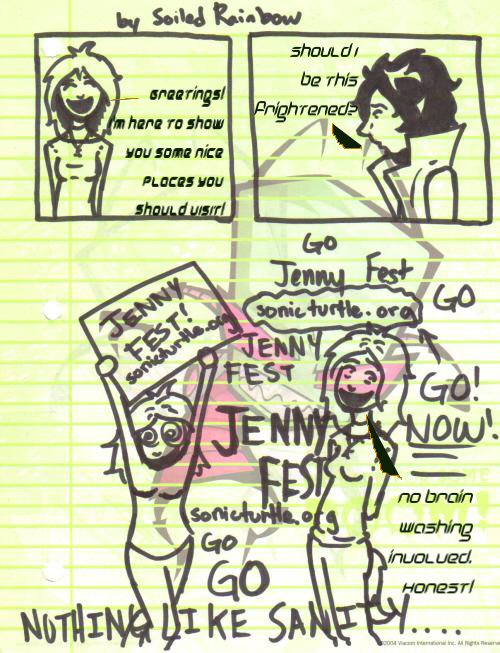 by Soiled Rainbow
Greetings!
I'm here to show
you some nice
places you
should visit!
Should I
be this
frightened?
GO
Jenny Fest
sonicturtle.org
GO
JENNY
FEST!
sonicturtle.org
JENNY
FEST
GO!
NOW!
JENNY
FEST
sonicturtle.org
GO
GO
No brain
washing
involved.
Honest!
NOTHING LIKE SANITY....
©2004 Viacom International Inc. All Rights Reserve